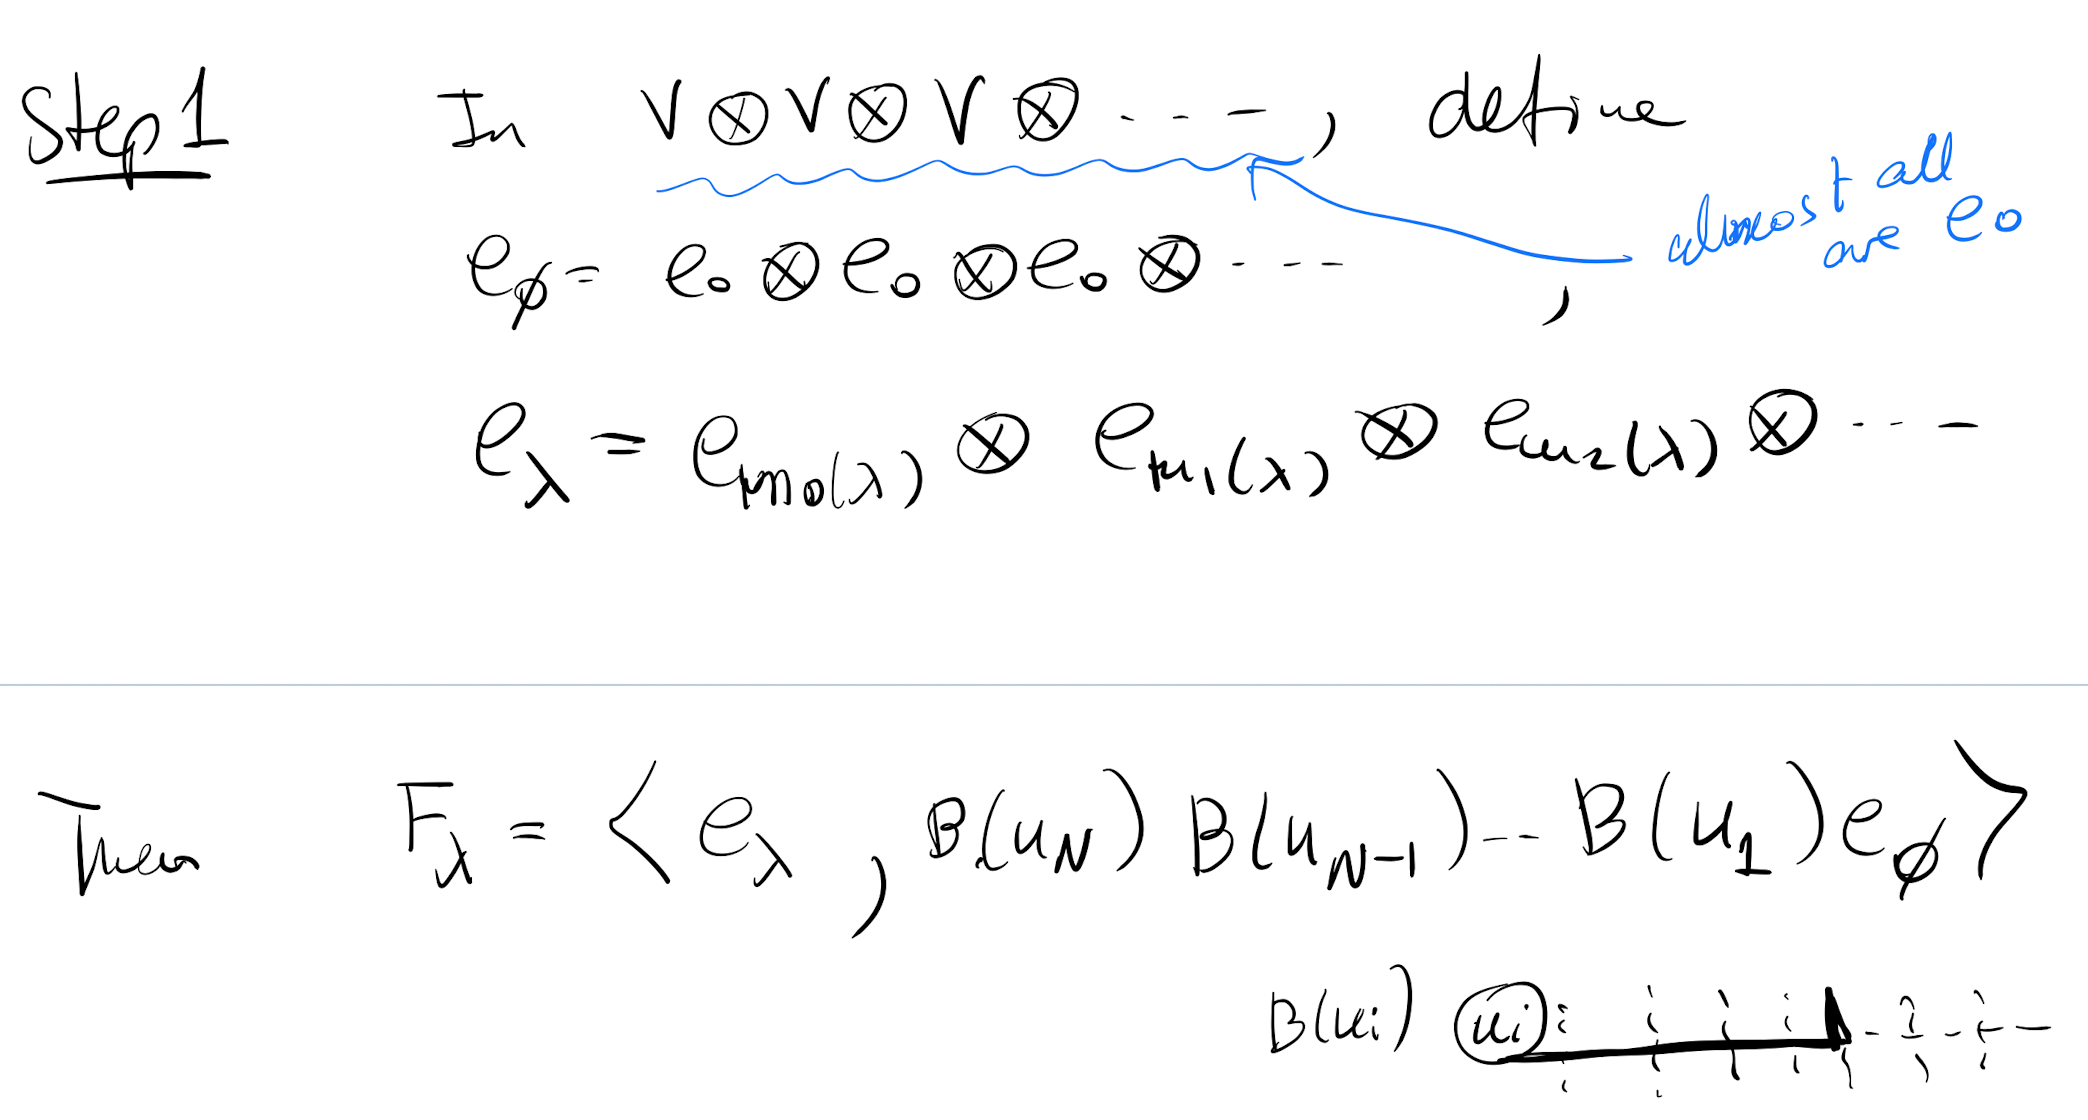 Step 1 In V ⊗ V ⊗ V ⊗ ..., define
almost all are e₀
e_ϕ = e₀ ⊗ e₀ ⊗ e₀ ⊗ ... ,
e_λ = e_{m₀(λ)} ⊗ e_{m₁(λ)} ⊗ e_{m₂(λ)} ⊗ ...
Then F_λ = ⟨ e_λ , B(u_N) B(u_{N-1}) ... B(u_1) e_ϕ ⟩
B(u_i) u_i